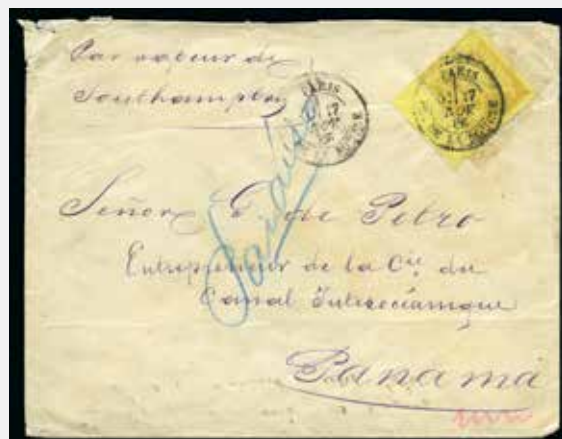 Par vapeur de
Southampton
PARIS
17
PARIS
17
Paraiso
Señor G. de Petro
Entrepreneur de la Cie. du
Canal Interocéanique
Panamá